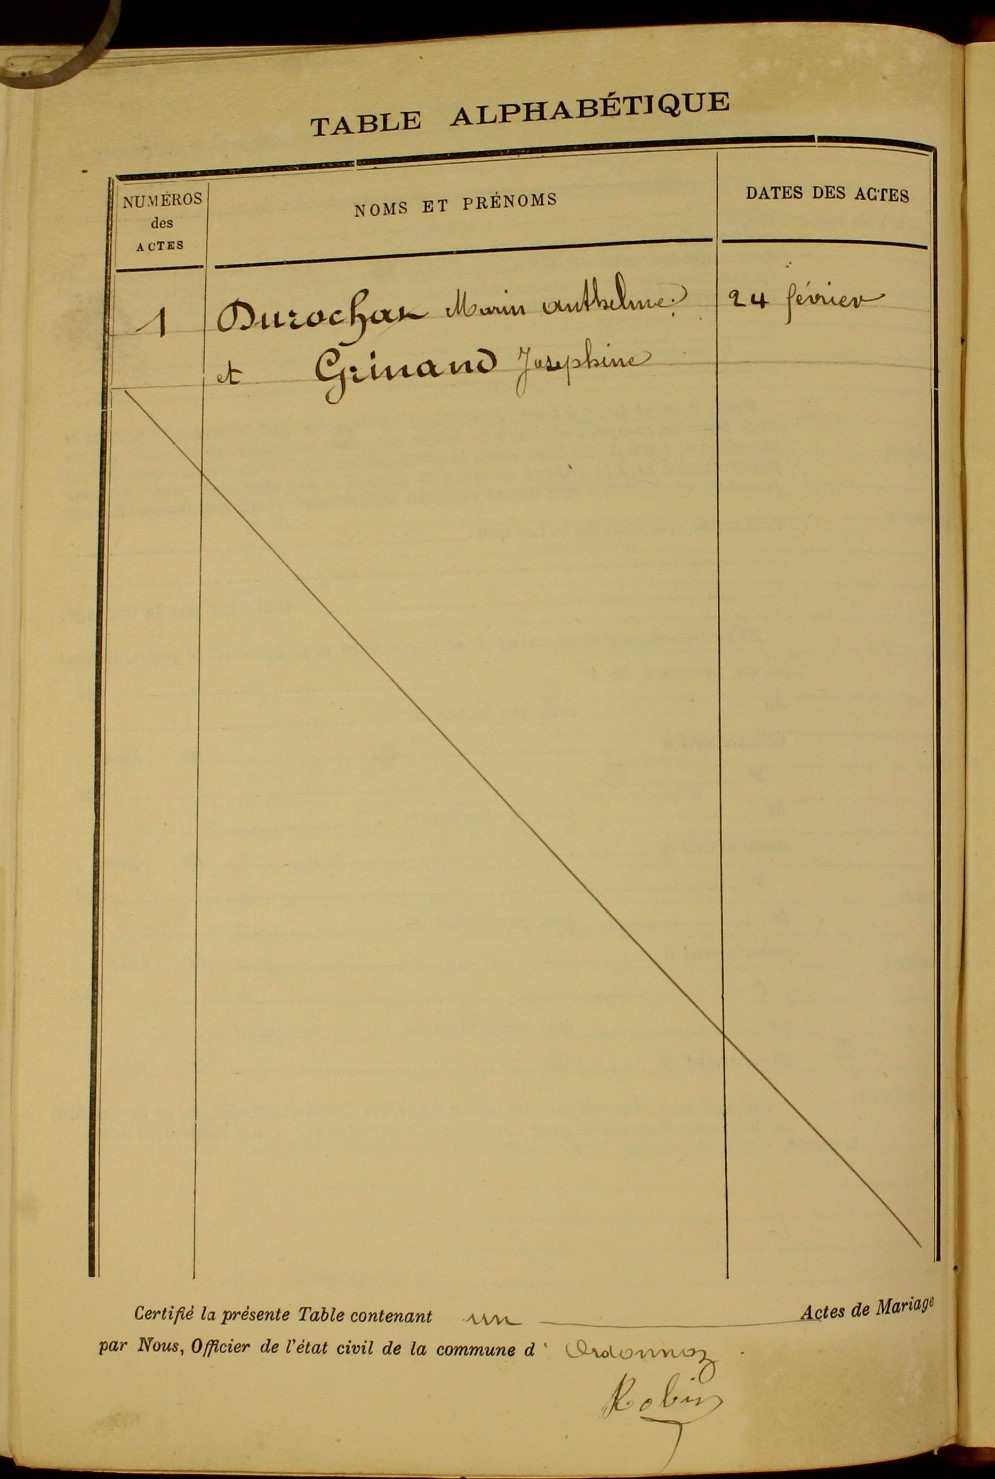 TABLE ALPHABÉTIQUE
NUMÉROS
des
ACTES
NOMS ET PRÉNOMS
DATES DES ACTES
1 Durochat Marin Anthelme 24 février
et Grinand Joséphine
Certifié la présente Table contenant un Actes de Mariage
par Nous, Officier de l'état civil de la commune d' Ordonnaz
Robin